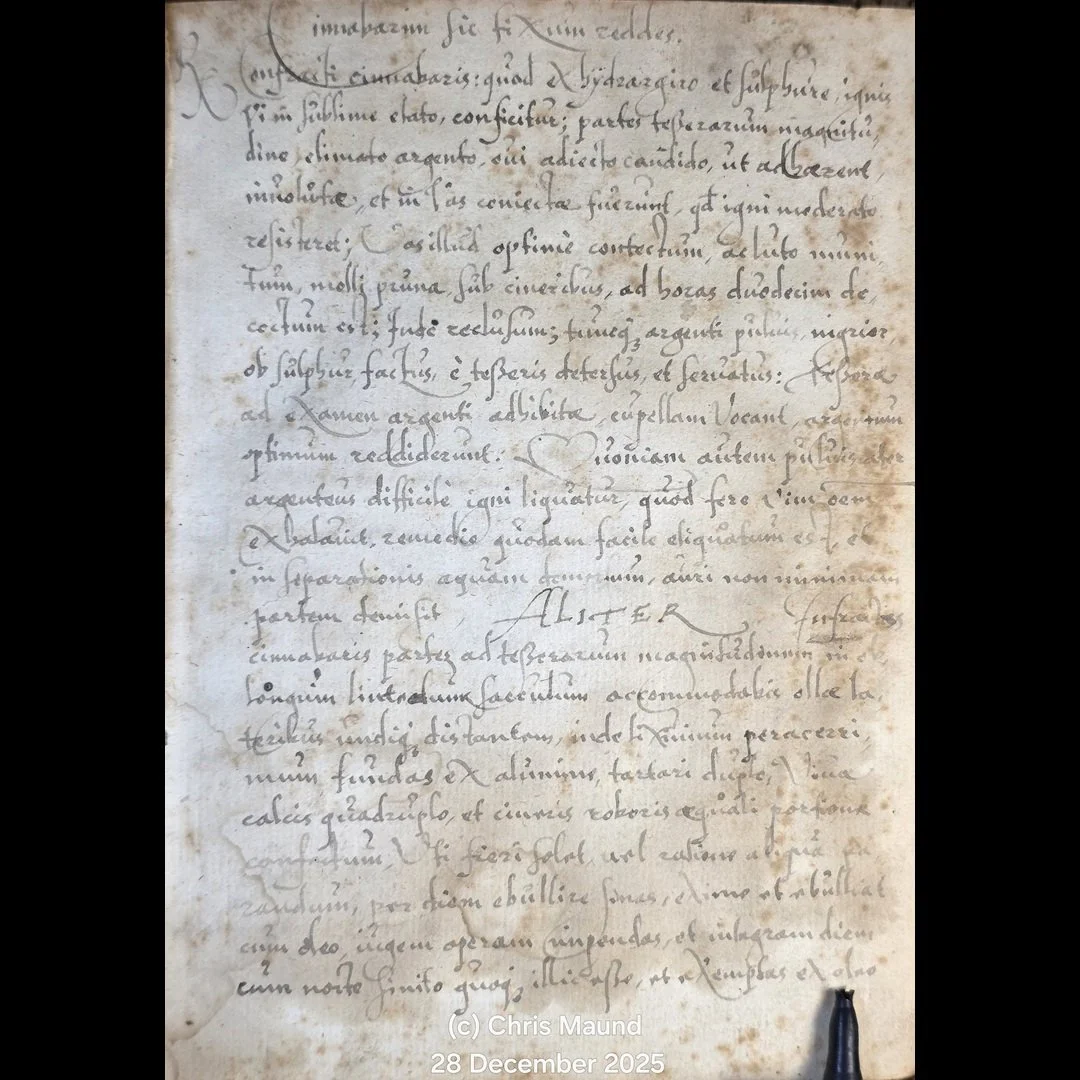 Cinnabarim sic fiXum reddes.
Confracti cinnabaris: quod eX hÿdrargiro et sulphure, ignis
vi in sublime elato, conficitur; partes teßerarum magnitu,
dine, elimato argento, ovi adiecto candido, ut adhærent,
involutæ, et in vas coniectæ fuerunt, qd igni moderato
resisteret; Vas illud optimè contectum, ac luto muni,
tum, molli pruna sub cineribus, ad horas duodecim de,
coctum est; Inde reclusum; tumq3 argenti pulvis, nigrior
ob sulphur factus, è teßeris detersus, et servatus: teßeræ
ad eXamen argenti adhibitæ, cupellam vocant, argentum
optimum reddiderunt. Quoniam autem pulvis ater
argenteus difficilè igni liquatur, quod fere vim oem
eXhalavit, remedio quodam facile eliquatum est, et
in separationis aquam demersum, auri non minimam
partem demisit, ALITER Infractas
cinnabaris partes ad teßerarum magnitudinem in
longum linteolum sacculum accommodabis ollæ la,
teribus undiq3 distantem, inde liXivium peracerri,
mum fundas eX alumine, tartari duplo, Vivæ
calcis quadruplo, et cineris roboris æquali portione
confectum, Uti fieri solet, vel ratione aliqua
randum, per diem ebullire sinas, eXime et ebulliat
cum oleo, iugem operam impendas, et integram diem
cum nocte sinito quoq3 illic eße, et eXemptas eX oleo
(c) Chris Maund
28 December 2025